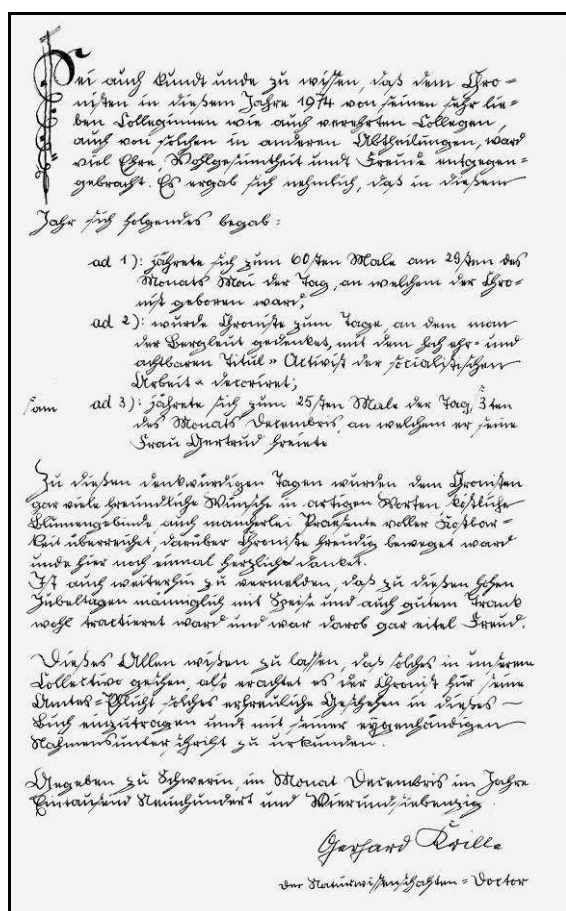 Sei auch kundt unde zu wissen, daß dem Chro=
nisten in diesem Jahre 1974 von seinen sehr lie=
ben Colleginnen wie auch verehrten Collegen,
auch von solchen in anderen Abtheilungen, ward
viel Ehre, Wohlgesinntheit undt Freude entgegen=
gebracht. Es ergab sich nehmlich, daß in diesem
Jahr sich folgendes begab:
ad 1): jährete sich zum 60sten Male am 29sten des
Monats Mai der Tag, an welchem der Chro=
nist geboren ward;
ad 2): wurde Chroniste zum Tage, an dem man
der Bergleut gedenket, mit dem hoch ehr= und
achtbaren Titul » Activist der socialistischen
Arbeit « decoriret;
ad 3): jährete sich zum 25sten Male der Tag, 3ten
sam
des Monats Decembris, an welchem er seine
Frau Gertrud freiete
Zu diesen denkwürdigen Tagen wurden dem Chronisten
gar viele freundliche Wünsche in artigen Worten, köstliche
Blumengebinde auch mancherlei Praesente voller Kostbar=
keit überreichet, darüber Chroniste freudig beweget ward
unde hier noch einmal herzlich danket.
Ist auch weiterhin zu vermelden, daß zu diesen hohen
Jubeltagen männiglich mit Speise und auch gutem Trank
wohl tractieret ward und war darob gar eitel Freud.
Dieses Allen wißen zu lassen, daß solches in unserem
Collectivo geschen, also erachtet es der Chronist für seine
Amtes=Pflicht solches erfreuliche Geschehen in dieses
Buch einzutragen undt mit seiner eygenhändigen
Nahmensunterschrift zu urkunden.
Gegeben zu Schwerin, im Monat Decembris im Jahre
Eintausend Neunhundert und Vierundsiebenzig
Gerhard Krille
der Naturwissenschaften=Doctor